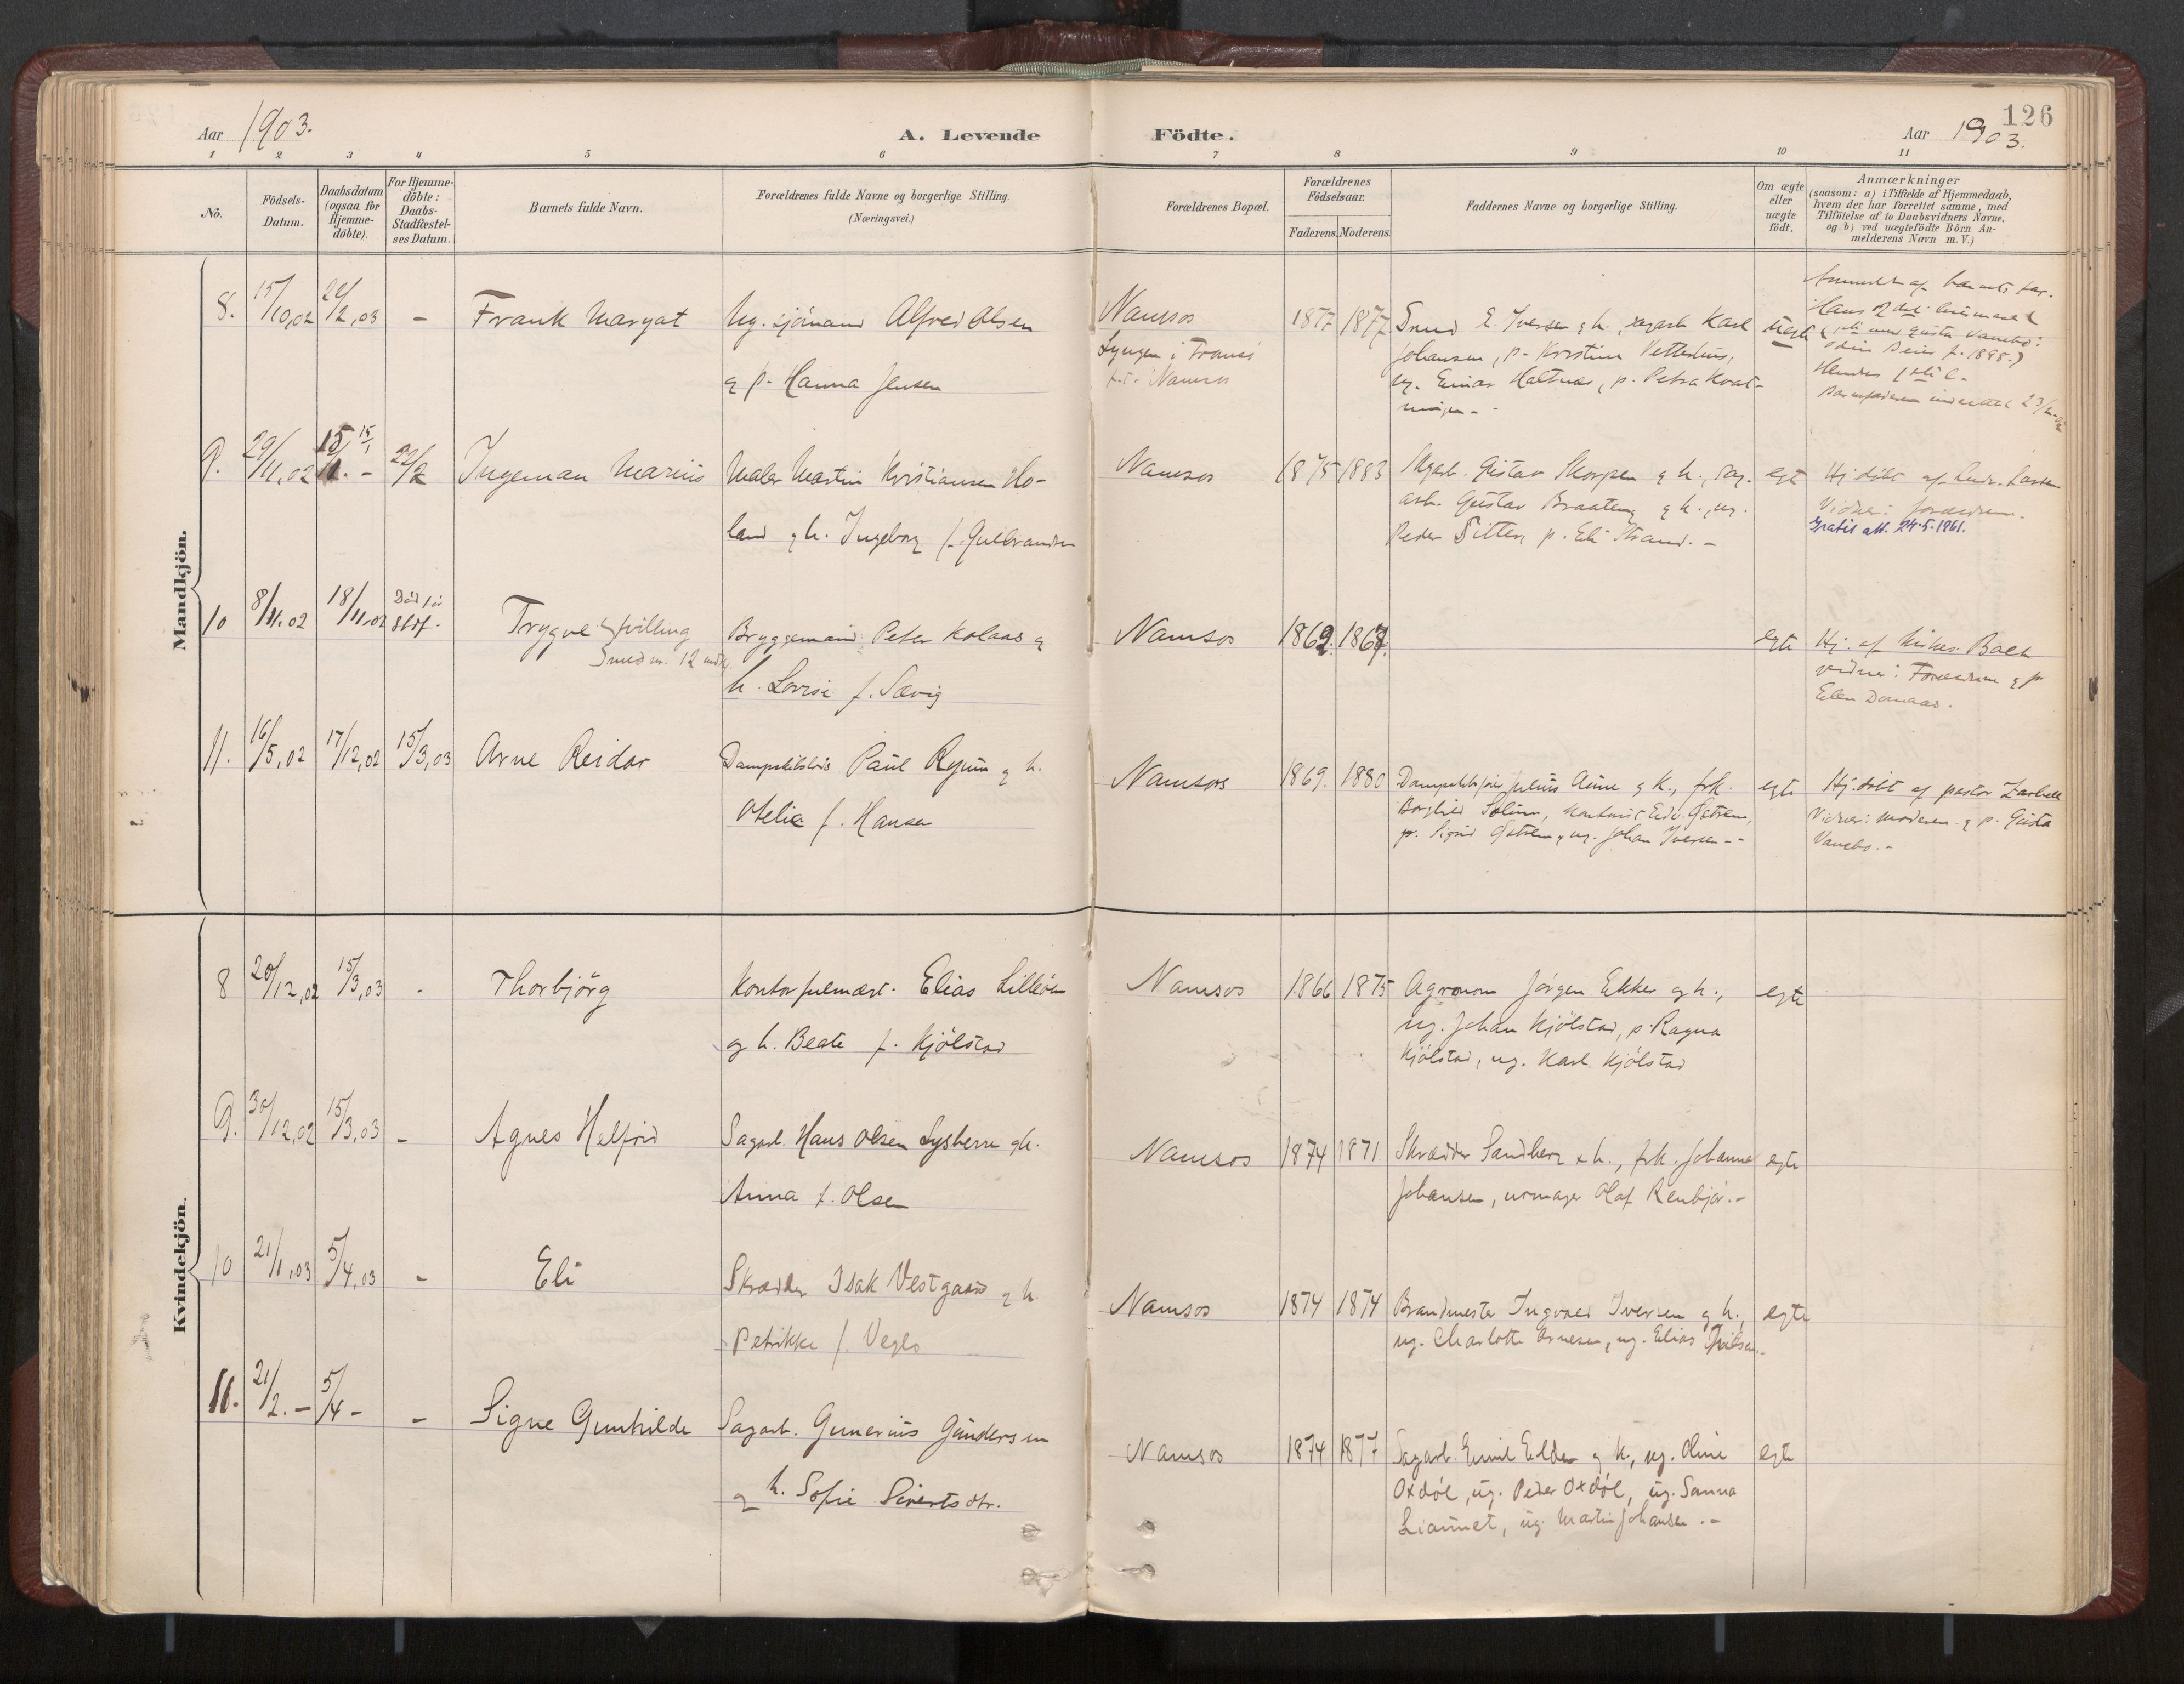 126
Aar 1903.
A. Levende Födte.
Aar 1903.
1 2 3 4 5 6 7 8 9 10 11
No.
Födsels-
Datum.
Daabsdatum
(ogsaa for
Hjemme-
döbte).
For Hjemme-
döbte:
Daabs-
Stadfæstel-
ses Datum.
Barnets fulde Navn.
Forældrenes fulde Navne og borgerlige Stilling.
(Næringsvei.)
Forældrenes Bopæl.
Forældrenes
Födselsaar.
Faderens. Moderens.
Faddernes Navne og borgerlige Stilling.
Om ægte
eller
uægte
födt.
Anmærkninger
(saasom: a) i Tilfælde af Hjemmedaab,
hvem der har forrettet samme, med
Tilföielse af to Daabsvidners Navne.
og b) ved uægtefödte Börn An-
melderens Navn m. V.)
Mandkjön.
8. 15/10,02 22/2,03 - Frank Margat
Ug. sjömand Alfred Olsen
q p. Hanna Jensen
Namsos
Lyngen i Tromsö
p.t. Namsos
1877 1877
Smed E. Iversen q h., sagarb. Karl
Johansen, p. Kristine
ug. Einar Haltnes, p. Petra
uegte
9. 29/11,02 15/1 - 22/2 Ingeman Marius
Maler Martin Kristiansen Ho-
land q h. Ingeborg f. Gulbrandsen
Namsos
1875 1883
Gustav Skorpen q h., sag-
arb. Gustav Braaten q h., ug.
Peder Sitter, p. Eli Strand. -
egte
Hj. döbt af Larsen
Vidner: forældrene.
Gratis att. 24-5-1961.
10 8/11.02 18/11.02
Död før
stdf.
Trygve tvilling
12
Bryggemand Peter Kolaas q
h. Lovise f. Sævig
Namsos
1862. 1867.
egte
Hj. af Bach
vidner: Forældrene q p
Elen Domaas.
11. 16/5,02 17/12,02 15/3,03 Arne Reidar
Paul Ryum q h.
Otelie f. Hansen
Namsos
1869. 1880
Julius Aune q h., frk.
Borghild Solum,
p. Sigrid, ug. Johan Iversen --
egte
Hj. döbt af pastor Zarbell
Vidner: moderen q p. Gusta
Vanebo. -
Kvindekjön.
8 20/12,02 15/3,03 - Thorbjörg
Kontorfuldmægt. Elias Lilleöen
og h. Beate f. Kjölstad
Namsos
1866 1875
Agronom Jörgen Ekker og h.,
ug. Johan Kjölstad, p. Ragna
Kjölstad, ug. Karl Kjölstad
egte
9. 30/12,02 15/3,03 - Agnes Halfrid
Sagarb. Hans Olsen q h.
Anna f. Olsen
Namsos
1874 1871
Skrædder Sandberg & h., frk. Johanne
Johansen, urmager Olaf Renbjör. -
egte
10 21/1,03 5/4,03 - Eli
Skrædder Isak Vestgaard q h.
Petrikke f. Veglo
Namsos
1874 1874
Brandmester Ingvald Iversen q h.,
ug. Charlotte Arnesen, ug. Elias
egte
11. 21/2.- 5/4 - - Signe Gunhilde
Sagarb. Gunerius Gundersen
q h. Sofie Sivertsdtr.
Namsos
1874 1877
Sagarb. Emil Elden q h., ug. Oline
Oxdöl, ug. Peder Oxdöl, ug. Sanna
Liaunet, ug. Martin Johansen. -
egte